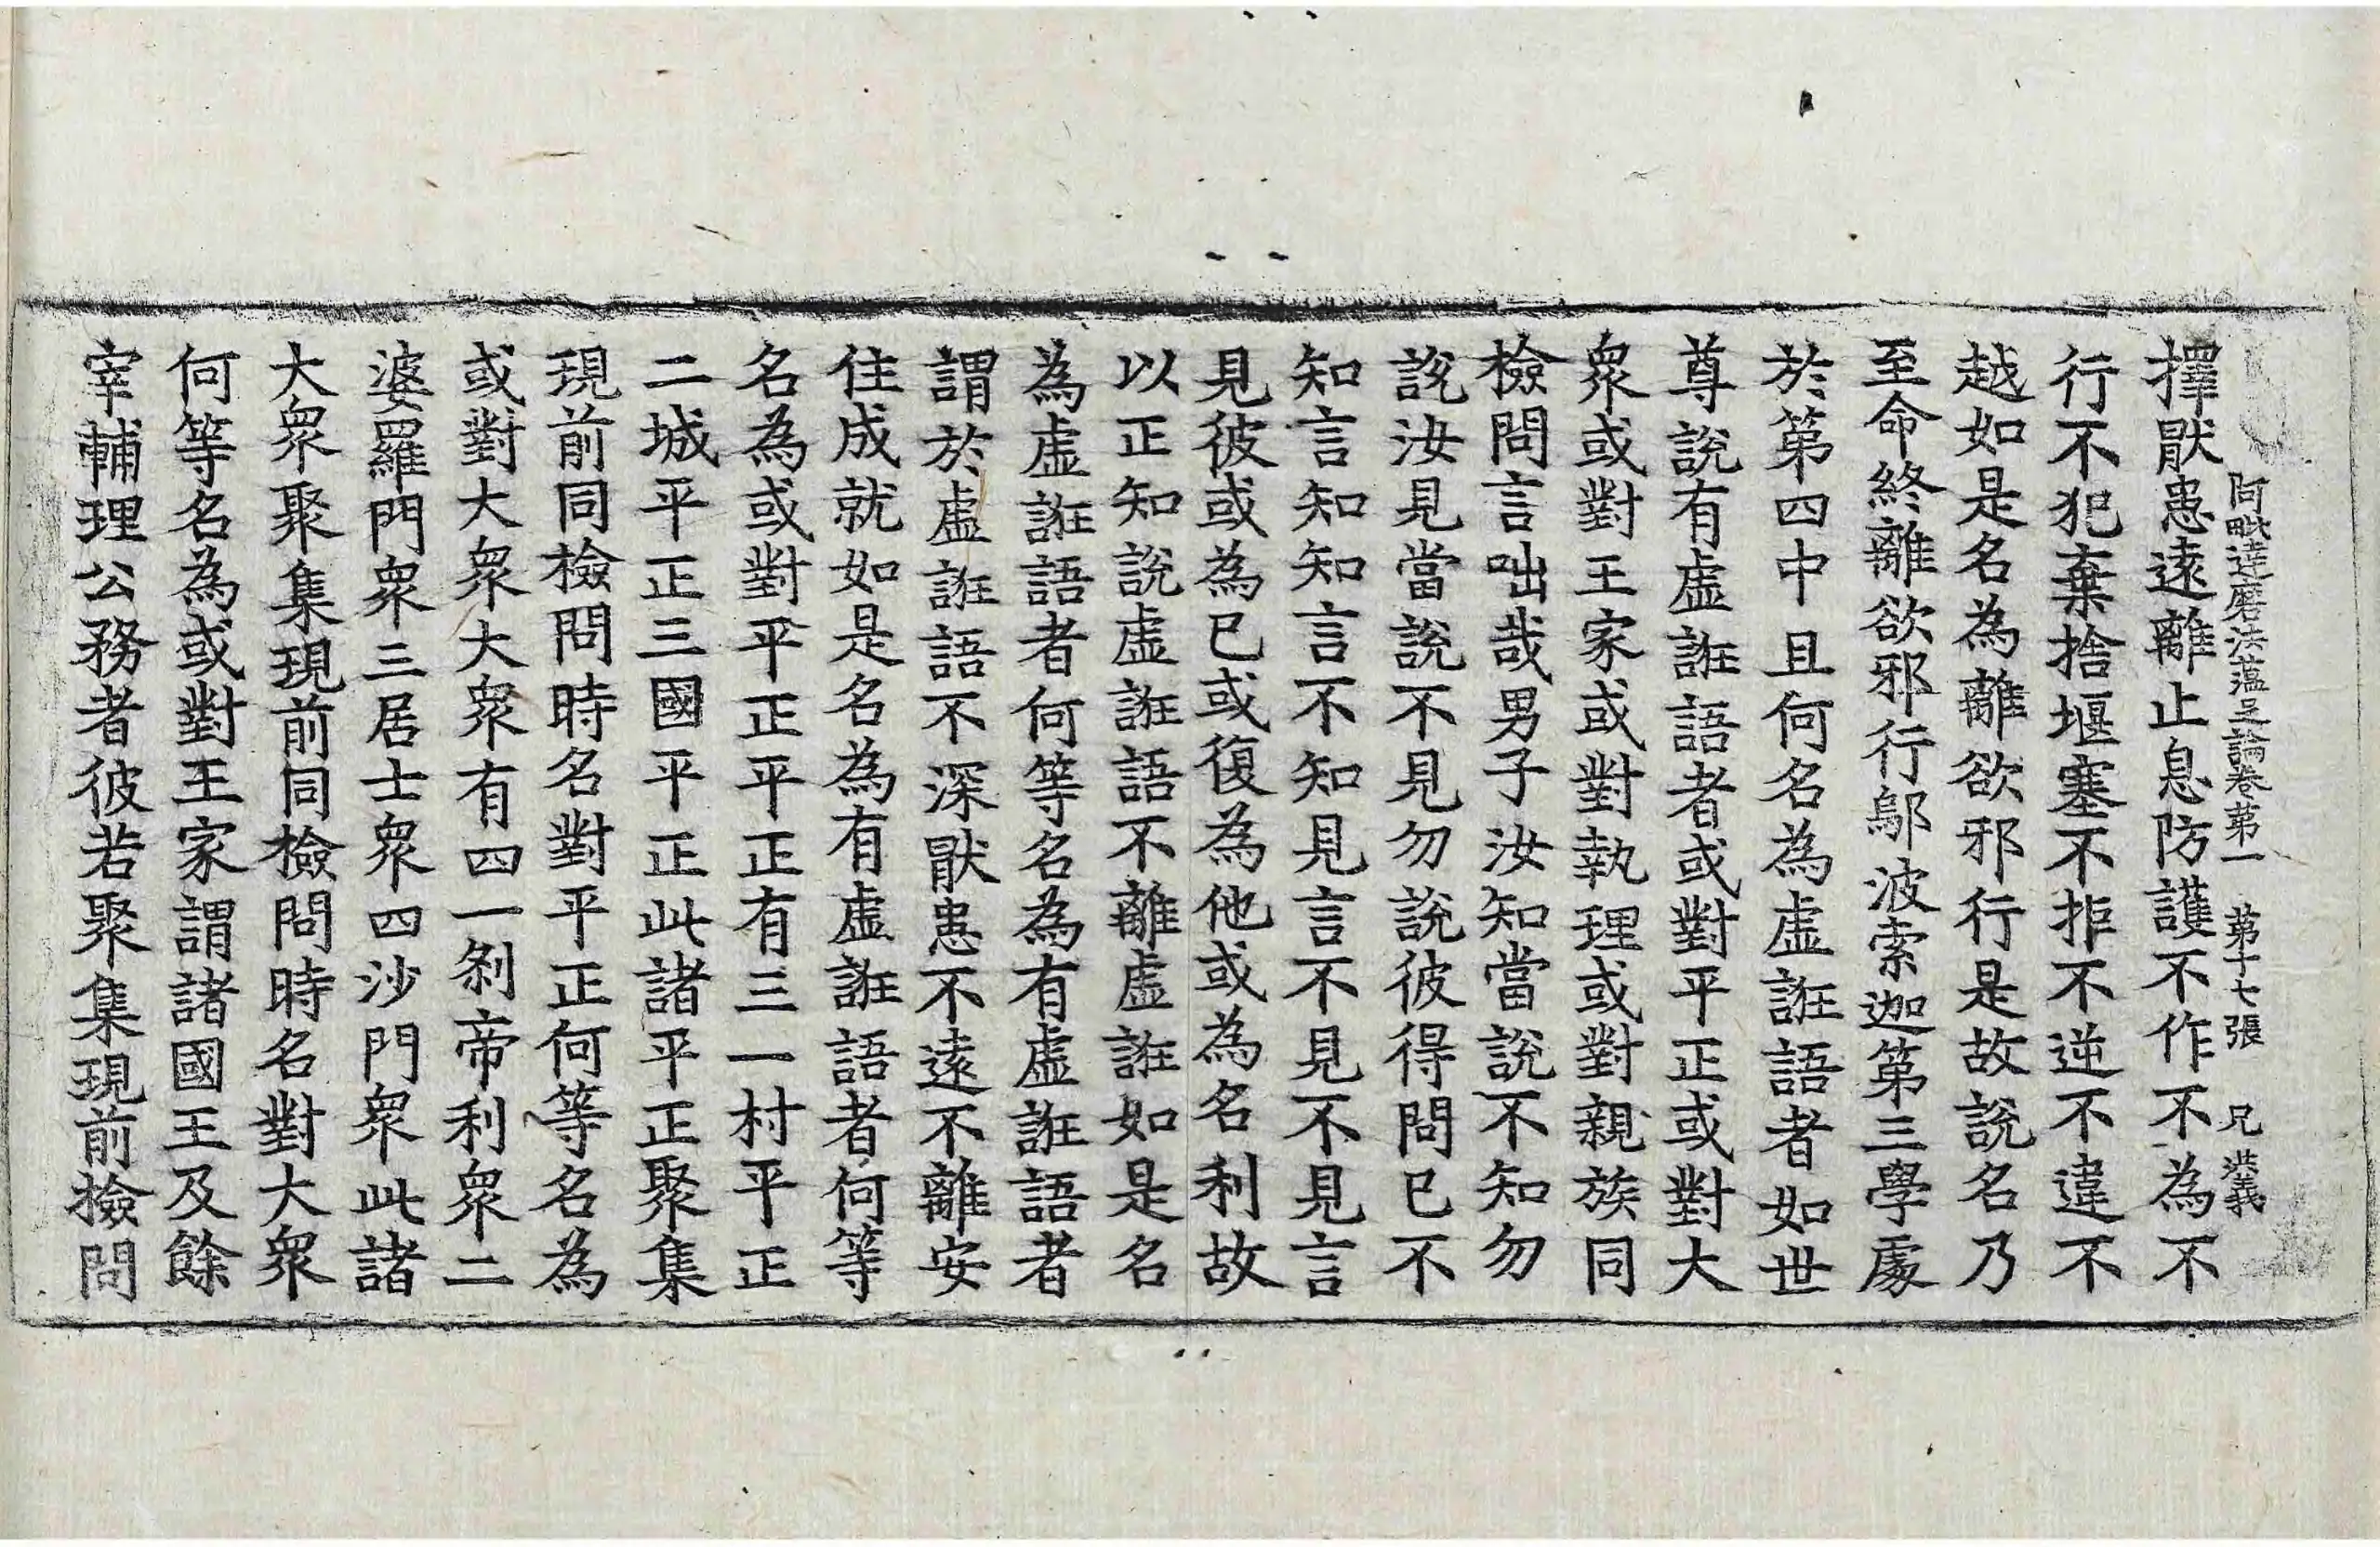 阿毗達磨法蘊足論卷第一 第十七張 兄 洪義
擇猒患遠離止息防護不作不為不
行不犯棄捨堰塞不拒不逆不違不
越如是名為離欲邪行是故說名乃
至命終離欲邪行鄔波索迦第三學處
於第四中且何名為虛誑語者如世
尊說有虛誑語者或對平正或對大
衆或對王家或對執理或對親族同
檢問言咄哉男子汝知當說不知勿
說汝見當說不見勿說彼得問已不
知言知知言不知見言不見不見言
見彼或為已或復為他或為名利故
以正知說虛誑語不離虛誑如是名
為虛誑語者何等名為有虛誑語者
謂於虛誑語不深猒患不遠不離安
住成就如是名為有虛誑語者何等
名為或對平正平正有三一村平正
二城平正三國平正此諸平正聚集
現前同檢問時名對平正何等名為
或對大衆大衆有四一剎帝利衆二
婆羅門衆三居士衆四沙門衆此諸
大衆聚集現前同檢問時名對大衆
何等名為或對王家謂諸國王及餘
宰輔理公務者彼若聚集現前撿問